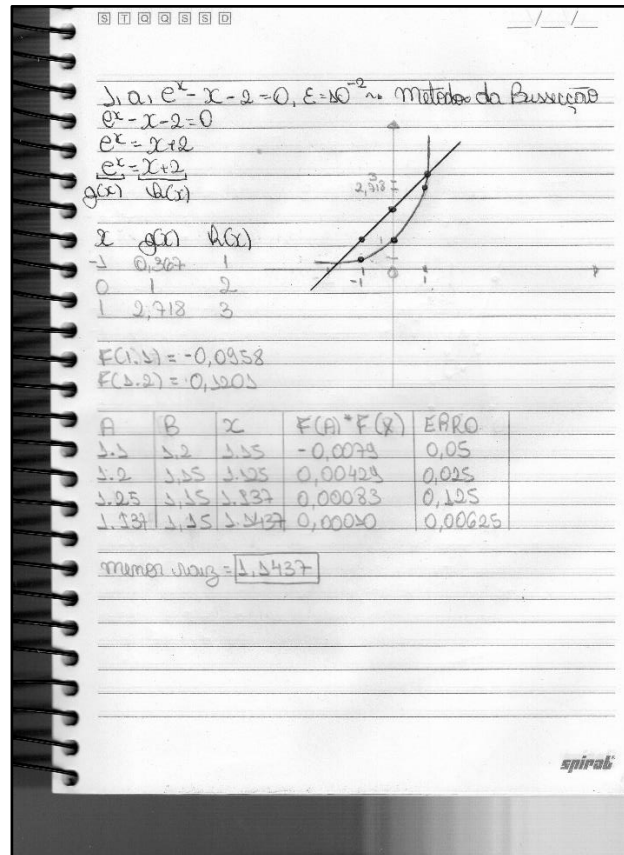 S T Q Q S S D
__/__/__
1, a, e^x - x - 2 = 0, ε = 10^-2 ~ Método da Bissecção
e^x - x - 2 = 0
e^x = x+2
e^x = x+2
g(x) h(x)
3
2,718
1
-1 0 1
x g(x) h(x)
-1 0,367 1
0 1 2
1 2,718 3
F(1.1) = -0,0958
F(1.2) = 0,1201
A B x F(A)*F(X) ERRO
1.1 1,2 1.15 -0,0079 0,05
1.2 1,15 1.125 0,00429 0,025
1.25 1,15 1.137 0,00083 0,125
1.137 1,15 1.1437 0,00010 0,00625
menor raiz = 1,1437
spiral